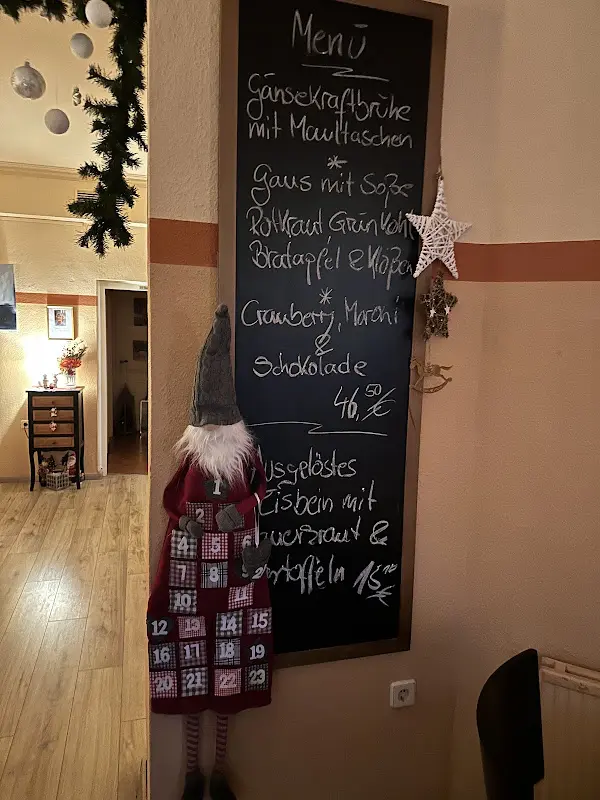 Menü
Gänsekraftbrühe
mit Maultaschen
*
Gans mit Soße
Rotkraut Grünkohl
Bratapfel & Klöße
*
Cranberry, Maroni
&
Schokolade
46,50 €
usgelöstes
Eisbein mit
auerkraut &
artoffeln 15,
€
1
2
4 5 6
7 8
10 11
12 13 14 15
16 17 18 19
20 21 22 23